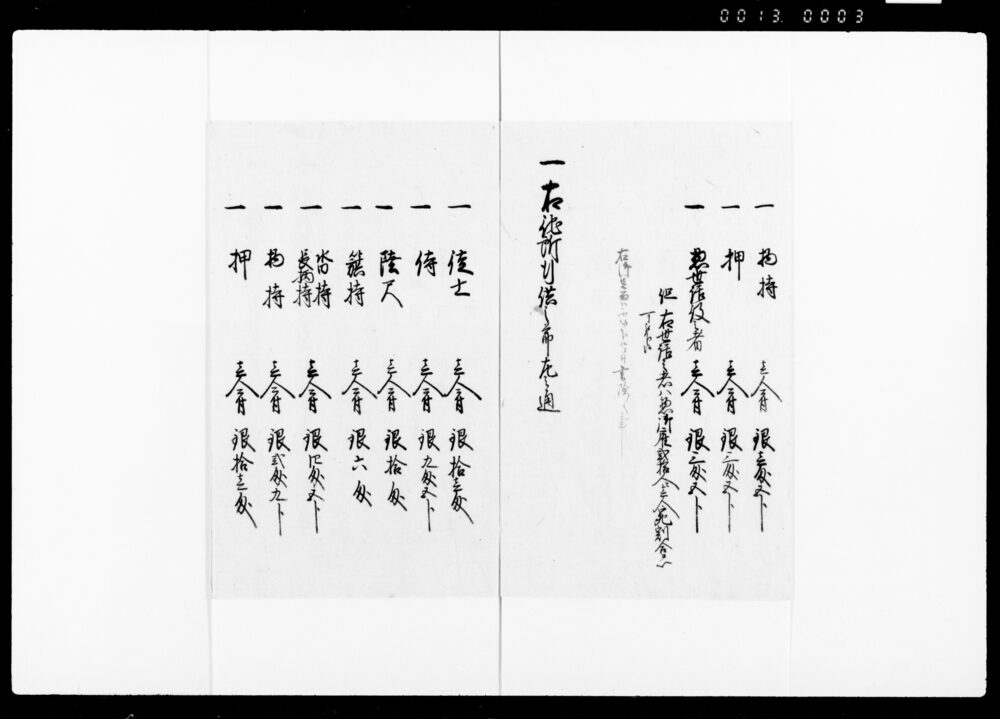 0013 0003
一 物持 壱人ニ付 銀壱匁五卜
一 押 壱人ニ付 銀三匁五卜
一 惣世話役之者 壱人ニ付 銀三匁五卜
但 右世話之者ハ惣御雇弐拾人ニ壱人宛割合ニ
右御
一 右他所行供之節左之通
一 徒士 壱人ニ付 銀拾壱匁
一 侍 壱人ニ付 銀九匁五卜
一 陸尺 壱人ニ付 銀拾匁
一 籏持 壱人ニ付 銀六匁
一 沓持 長柄持 壱人ニ付 銀四匁五卜
一 物持 壱人ニ付 銀弐匁九卜
一 押 壱人ニ付 銀拾壱匁